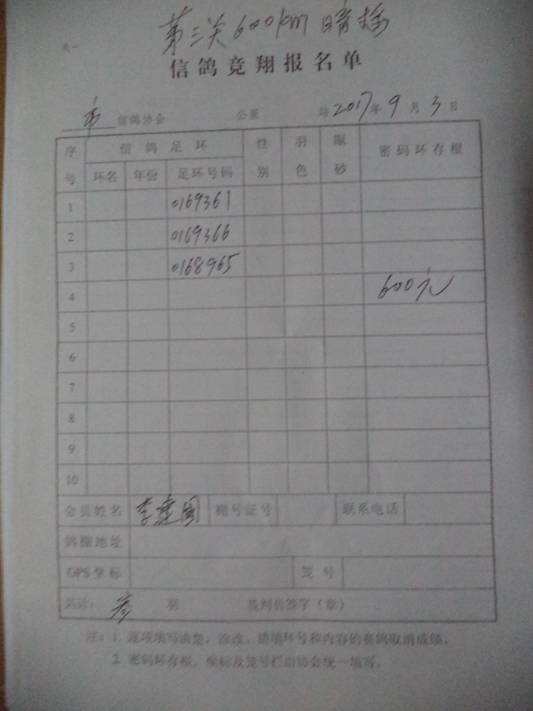 第三关600km
表一
信鸽竞翔报名单
市 信鸽协会 公里 站 2017年9月3日
序号 信鸽足环 性别 羽色 眼砂 密码环存根
环名 年份 足环号码
1 0169361
2 0169366
3 0168965
4 600元
5
6
7
8
9
10
会员姓名 李建国 棚号证号 联系电话
鸽棚地址
GPS坐标 笼号
共计: 叁 羽 裁判员签字(章)
注:1. 逐项填写清楚,涂改、错填环号和内容的赛鸽取消成绩。
2. 密码环存根、坐标及笼号栏由协会统一填写。